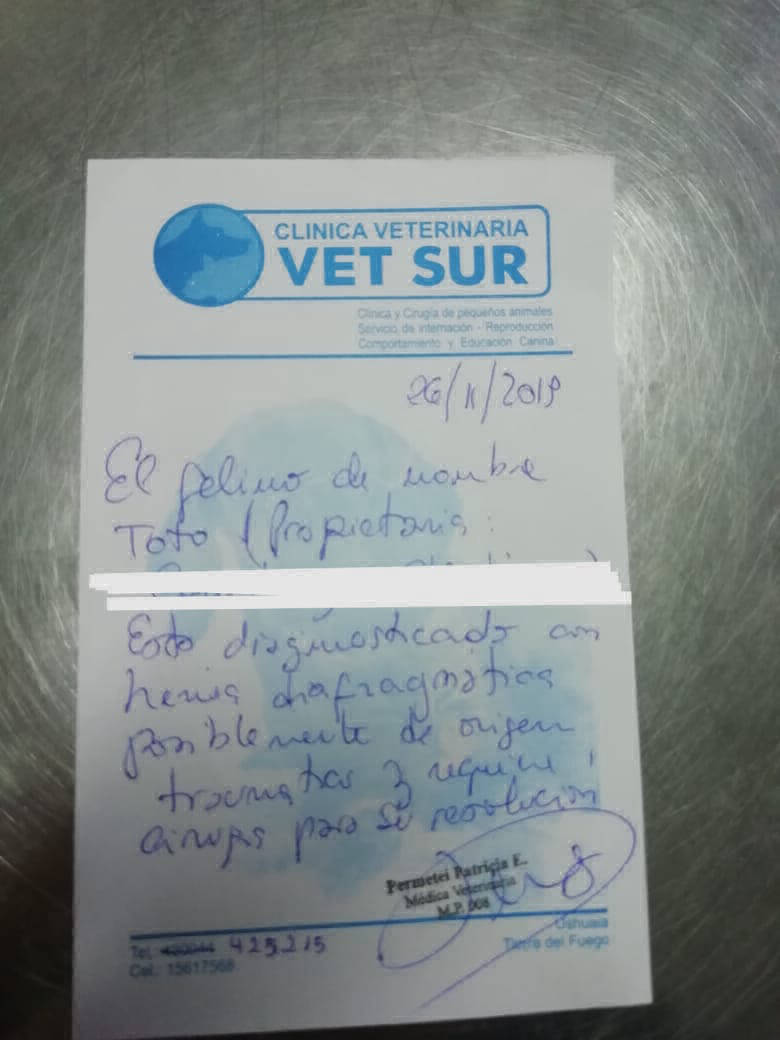 CLINICA VETERINARIA
VET SUR
Clinica y Cirugía de pequeños animales
Servicio de internación - Reproducción
Comportamiento y Educación Canina
26/11/2019
El felino de nombre
Toto (Propietaria:
Esta diagnosticado con
hernia diafragmática
posiblemente de origen
traumatico y requiere
cirugia para su resolución
Permetei Patricia E.
Médica Veterinaria
M.P. 008
Ushuaia
Tierra del Fuego
Tel. 425215
Cel.: 15617568